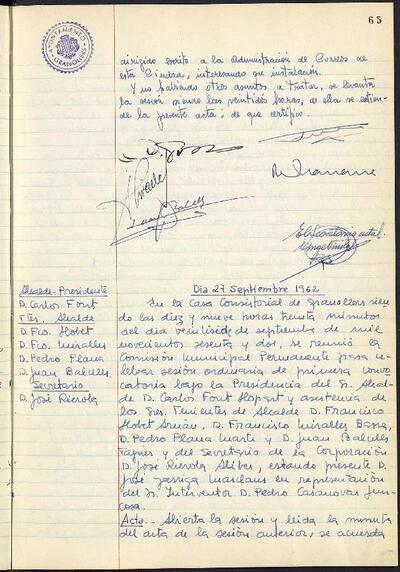 65
AYUNTAMIENTO
GRANOLLERS
dirigido escrito a la Administración de Correos de
esta Ciudad, interesando su instalación.
Y no habiendo otros asuntos a tratar, se levanta
la sesión siendo las veintidos horas, de ella se extien-
de la presente acta; de que certifico.
El Secretario actal.
Alcalde-Presidente
D. Carlos Font
Ttes. Alcalde
D. Fco. Llobet
D. Fco. Miralles
D. Pedro Plana
D. Juan Balcells
Secretario
D. José Rierola
Dia 27 Septiembre 1962
En la Casa Consistorial de Granollers sien-
do las diez y nueve horas treinta minutos
del dia veintisiete de septiembre de mil
novecientos sesenta y dos, se reunió la
Comisión Municipal Permanente para ce-
lebrar sesión ordinaria de primera convo-
catoria bajo la Presidencia del Sr. Alcal-
de D. Carlos Font Llopart y asistencia de
los Sres. Tenientes de Alcalde D. Francisco
Llobet Arnán, D. Francisco Miralles Bassa,
D. Pedro Plana Martí y D. Juan Balcells
y del Secretario de la Corporación
D. José Rierola Aliber, estando presente D.
José Masclans en representación
del Sr. Interventor D. Pedro Casanovas Jun-
cosa.
Acta.- Abierta la sesión y leida la minuta
del acta de la sesión anterior, se acuerda